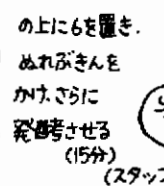 の上に6を置き.
ぬれぶきんを
かけ、さらに
発酵させる
(15分)
(スタッフ